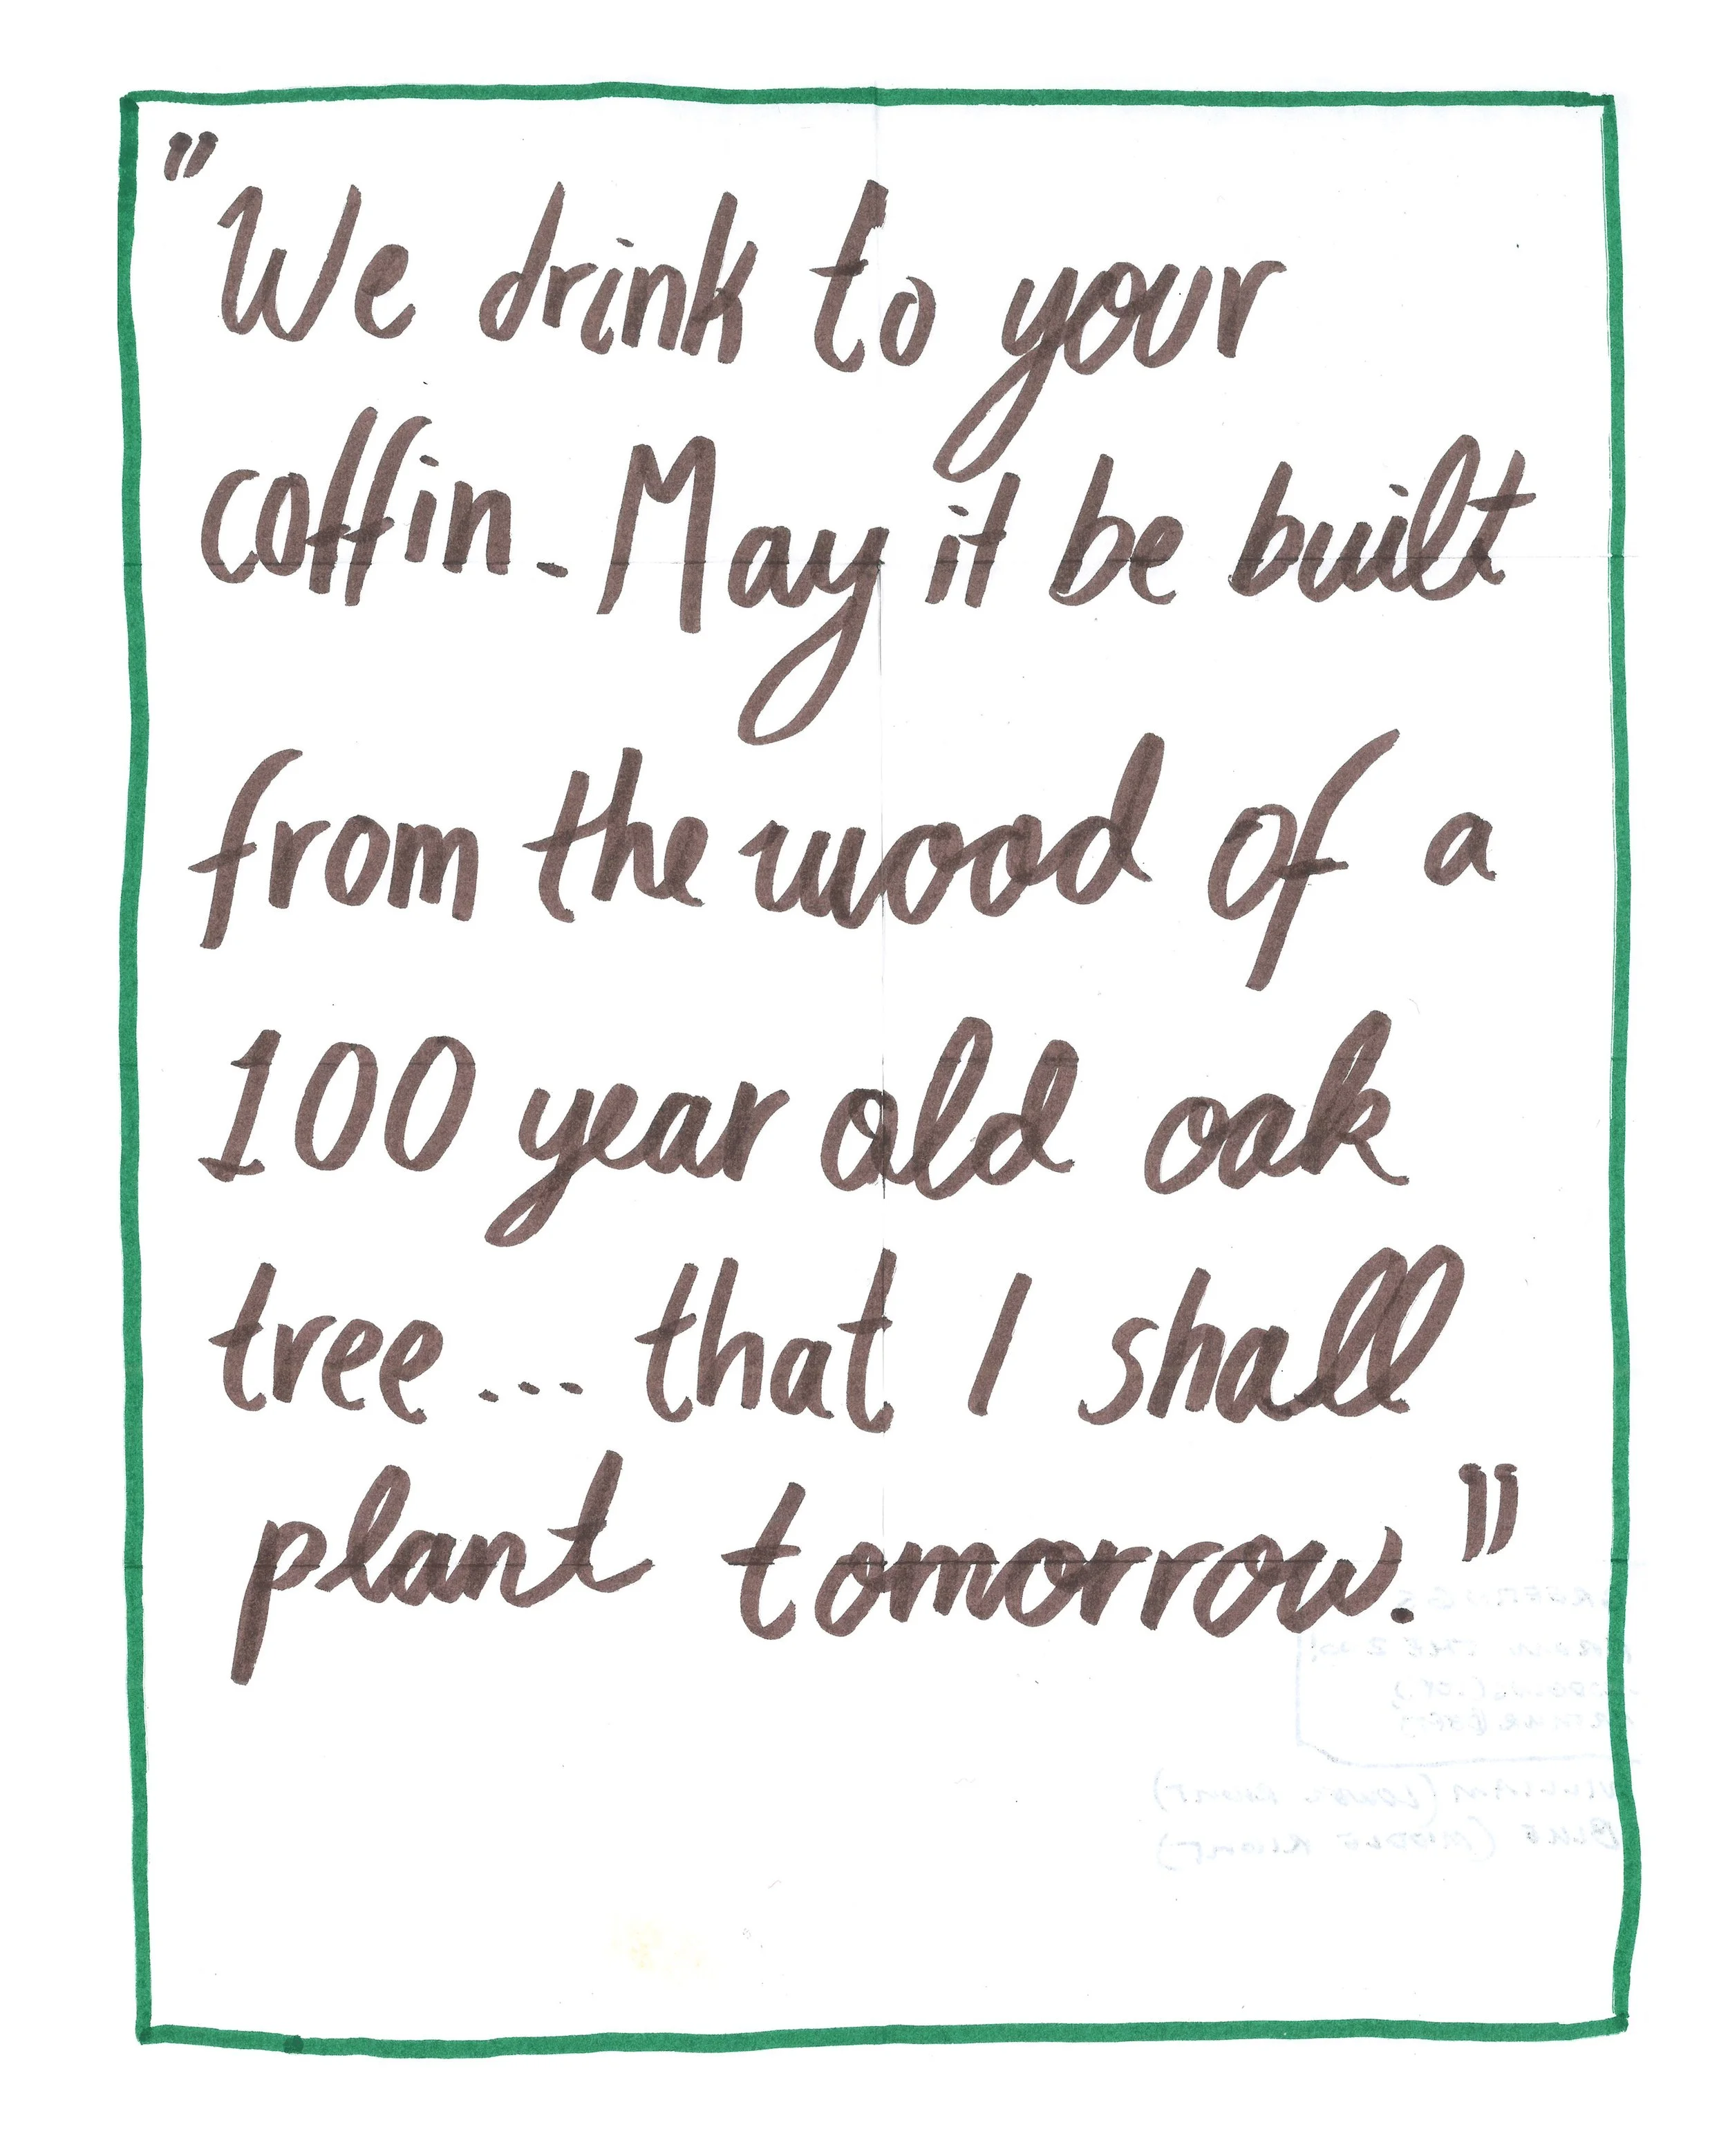 "We drink to your
coffin. May it be built
from the wood of a
100 year old oak
tree... that I shall
plant tomorrow."